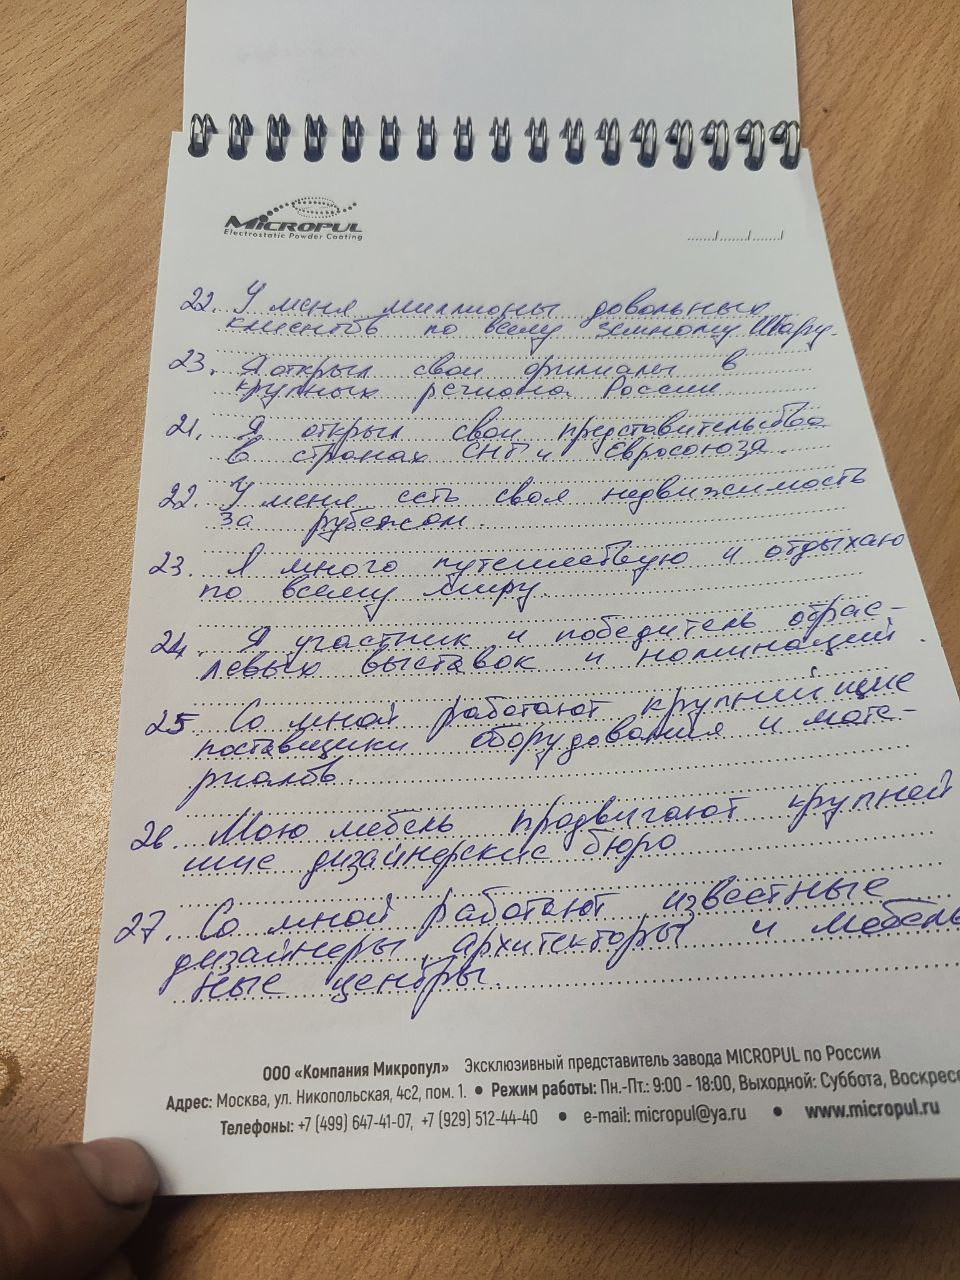 MICROPUL
Electrostatic Powder Coating
22. У меня миллионы довольных
клиентов по всему земному Шару.
23. Я открыл свои филиалы в
крупных региона России
21. Я открыл свои представительства
в странах СНГ и Евросоюза.
22. У меня есть своя недвижимость
за рубежом.
23. Я много путешествую и отдыхаю
по всему миру.
24. Я участник и победитель отрас-
левых выставок и номинаций.
25 Со мной работают крупнейшие
поставщики оборудования и мате-
риалов
26. Мою мебель продвигают крупней
шие дизайнерские бюро
27. Со мной работают известные
дизайнеры, архитекторы и мебель
ные центры.
ООО «Компания Микропул» Эксклюзивный представитель завода MICROPUL по России
Адрес: Москва, ул. Никопольская, 4с2, пом. 1. • Режим работы: Пн.-Пт.: 9:00 - 18:00, Выходной: Суббота, Воскресе
Телефоны: +7 (499) 647-41-07, +7 (929) 512-44-40 • e-mail: micropul@ya.ru • www.micropul.ru